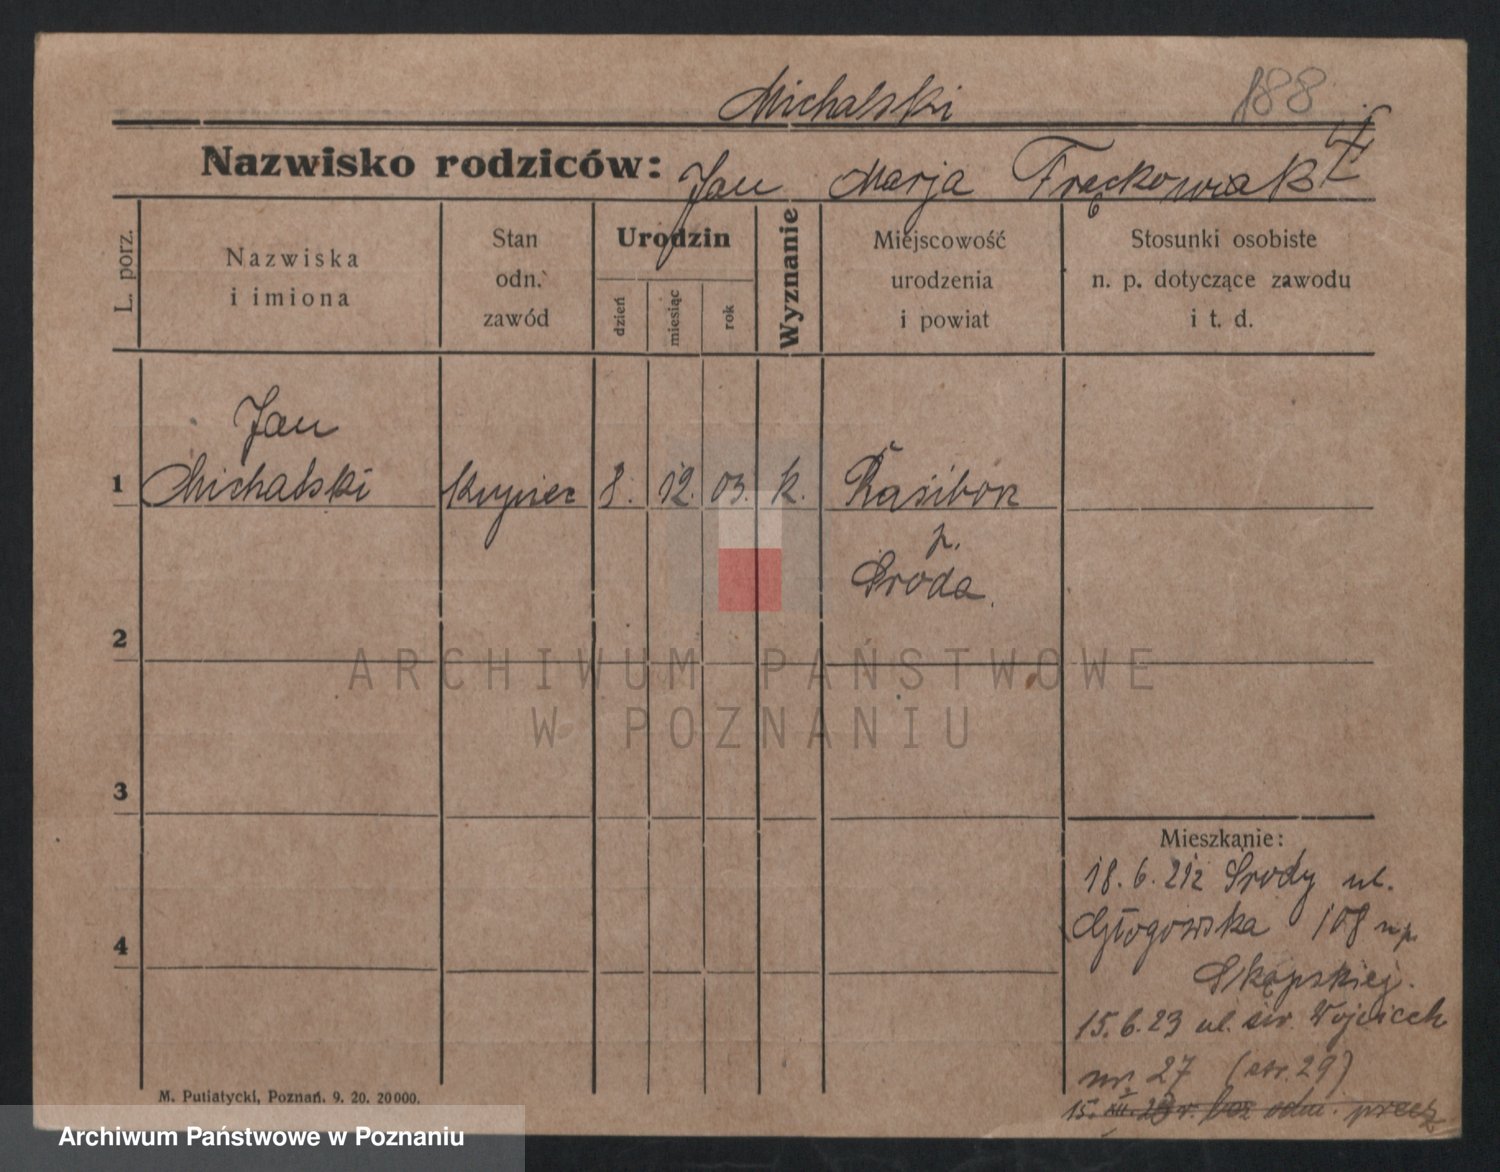 Michalski 188
Nazwisko rodziców: Jan Marja Frąckowiak
L. porz.
Nazwiska
i imiona
Stan
odn.
zawód
Urodzin
dzień
miesiąc
rok
Wyznanie
Miejscowość
urodzenia
i powiat
Stosunki osobiste
n. p. dotyczące zawodu
i t. d.
Jan
1 Michalski kupiec 8. 12. 03. k.
p.
Środa.
2
ARCHIWUM PAŃSTWOWE
W POZNANIU
3
4
Mieszkanie:
18. 6. 21 z Środy ul.
Głogowska 108 np.
Skąpskiej.
15. 6. 23 ul. św. Wojciech
nr. 27 (str. 29)
15. XII. 23 r. bez odm. przez
M. Putiatycki, Poznań. 9. 20. 20000.
Archiwum Państwowe w Poznaniu